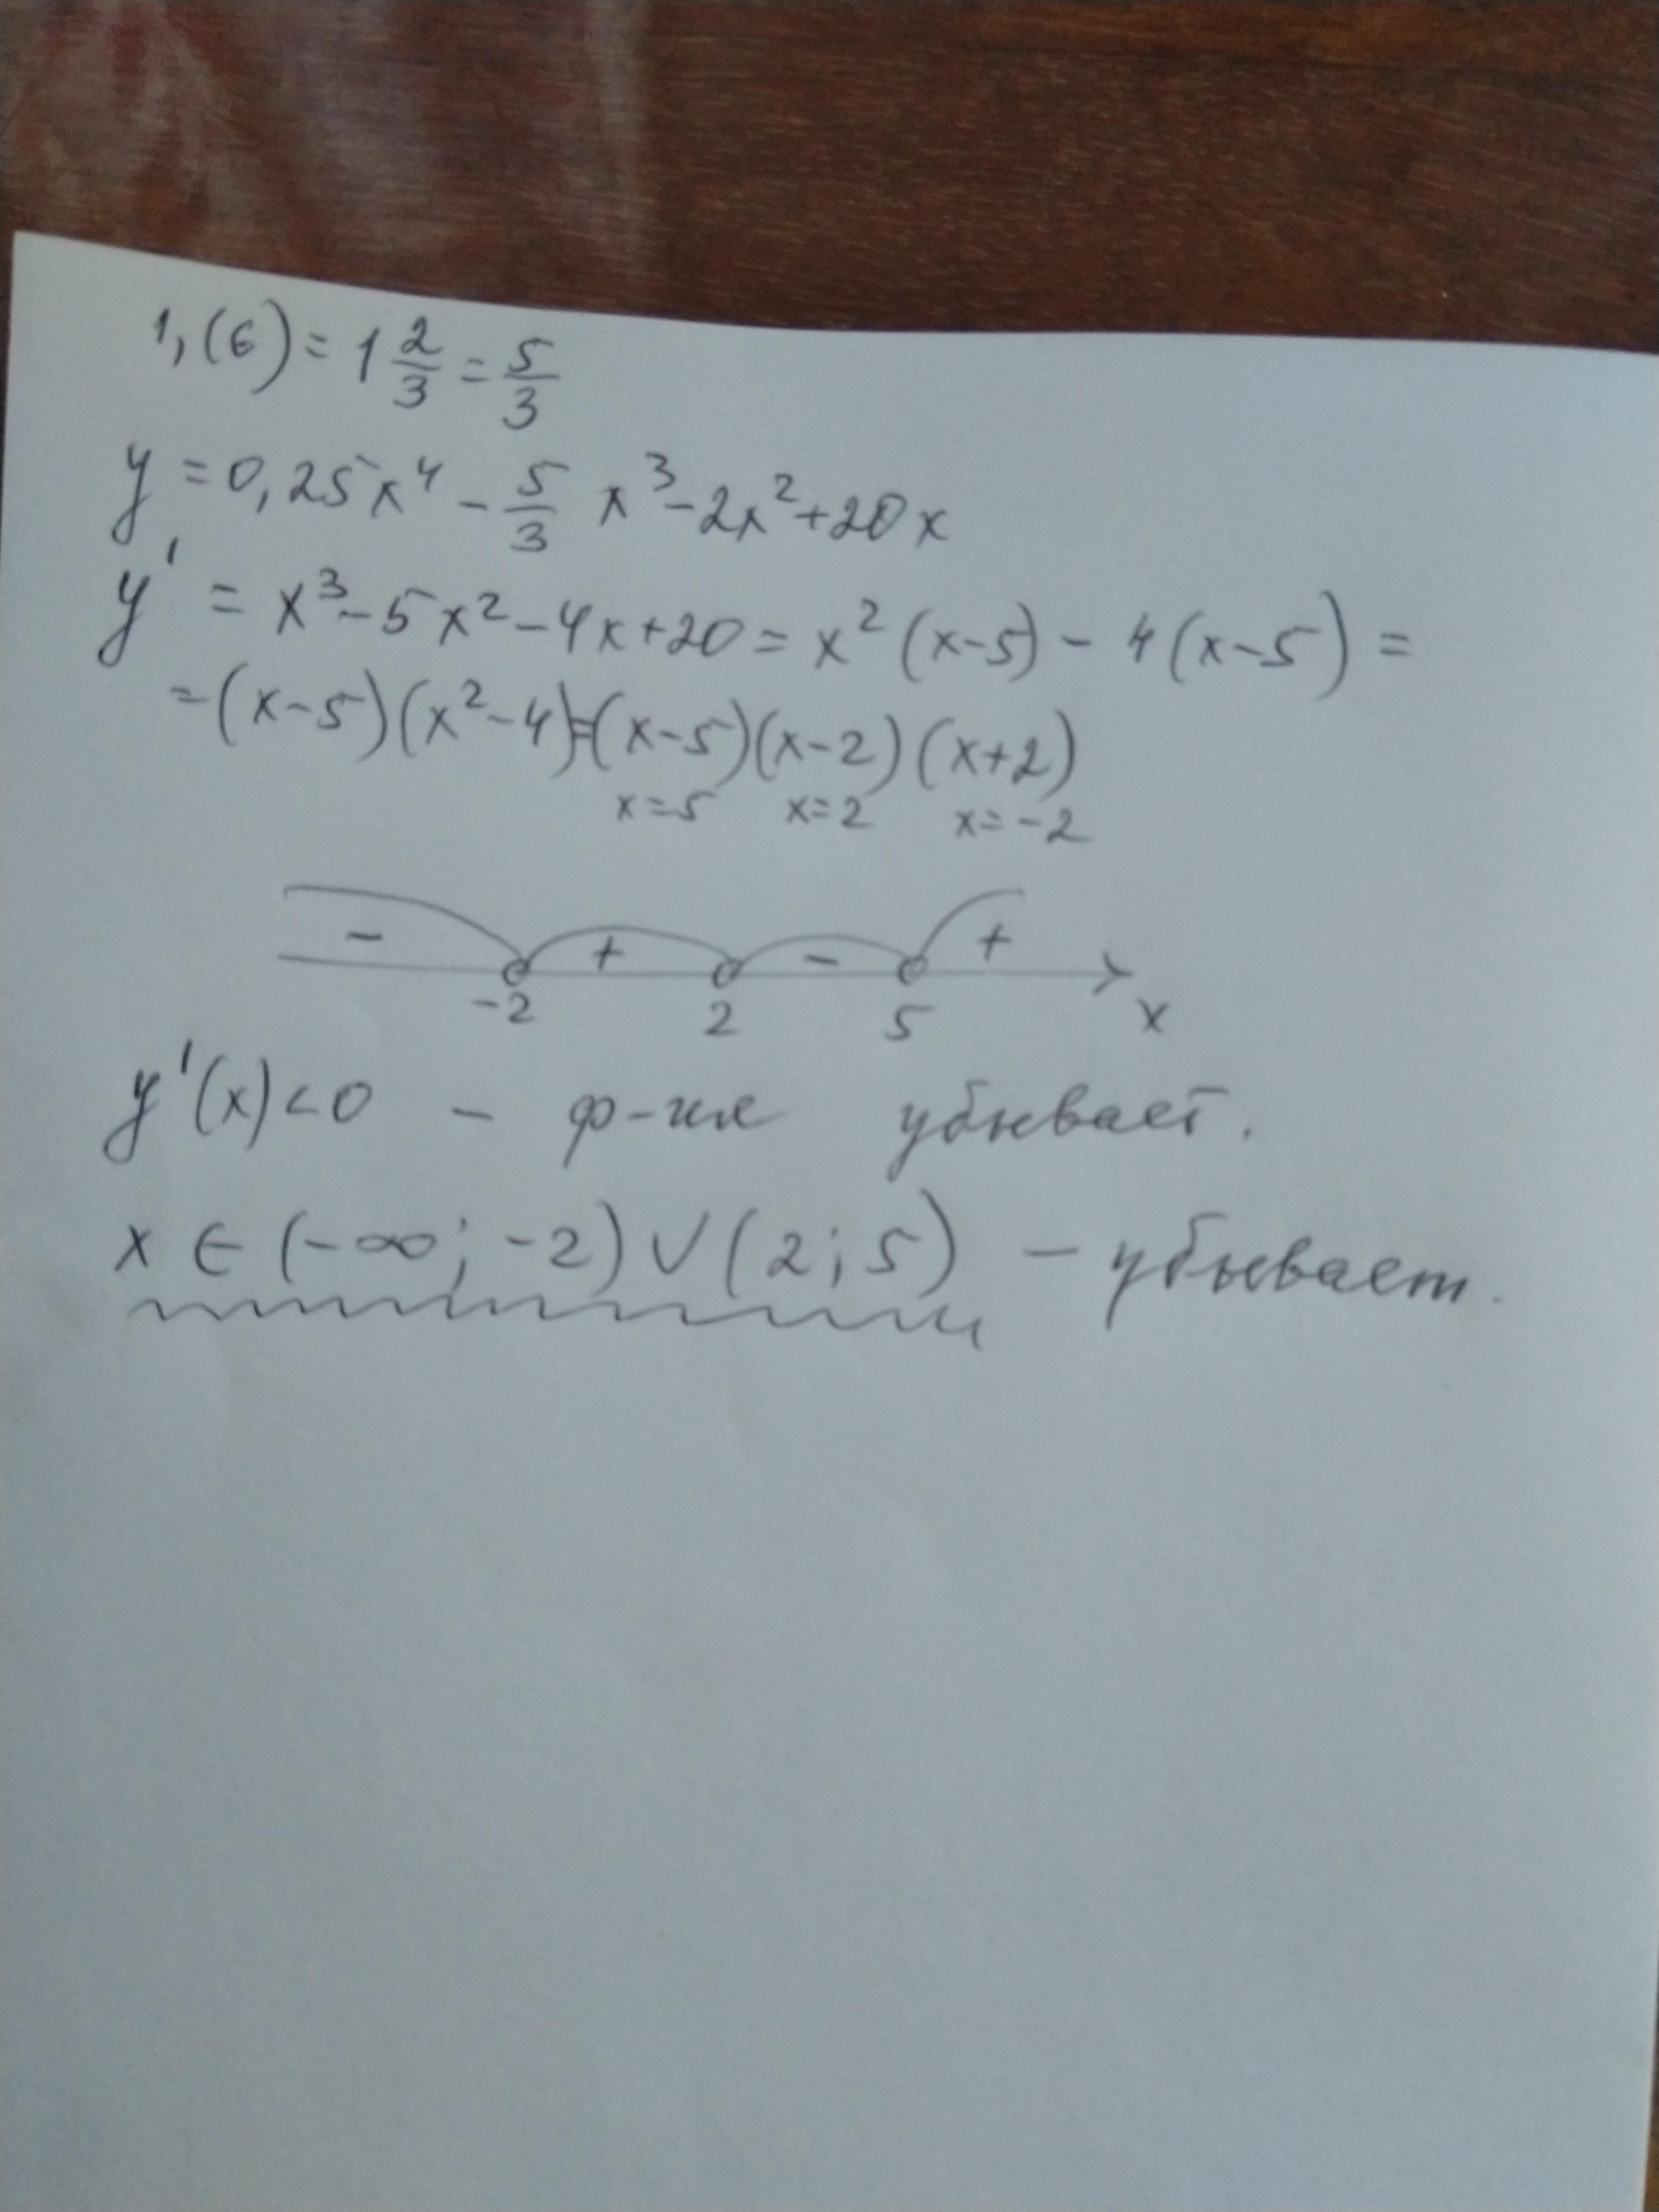 1,(6) = 1 2/3 = 5/3
y = 0,25x⁴ - 5/3 x³ - 2x² + 20x
y' = x³ - 5x² - 4x + 20 = x²(x-5) - 4(x-5) =
= (x-5)(x²-4) = (x-5)(x-2)(x+2)
x=5 x=2 x=-2
- + - +
-2 2 5 x
y'(x) < 0 - ф-ия убывает.
x ∈ (-∞; -2) ∨ (2; 5) - убывает.